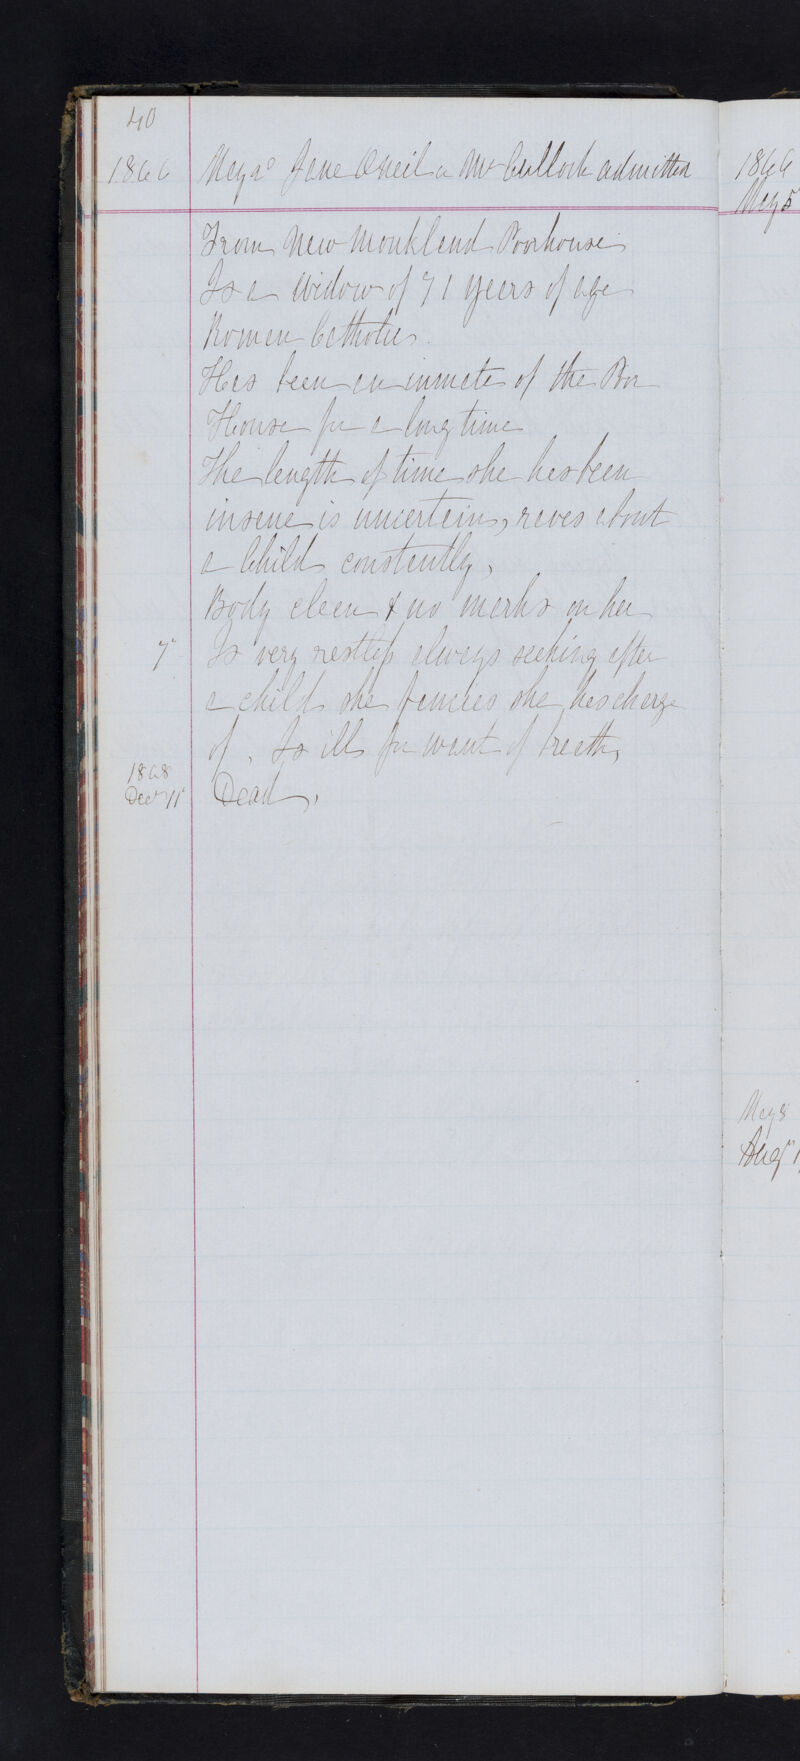 40
1866 May 2d Jane Oneil or McCulloch admitted
From New Monkland Poorhouse
Is a Widow of 71 years of age
Roman Catholic.
Has been an inmate of the Poor
House for a long time
The length of time she has been
insane is uncertain, raves about
a Child constantly,
Body clean & no marks on her
7" Is very restless always seeking after
a child she fancies she has charge
of. Is ill for want of breath,
1868
Decr 11" Dead.
1866
May 5
May 8
Augt